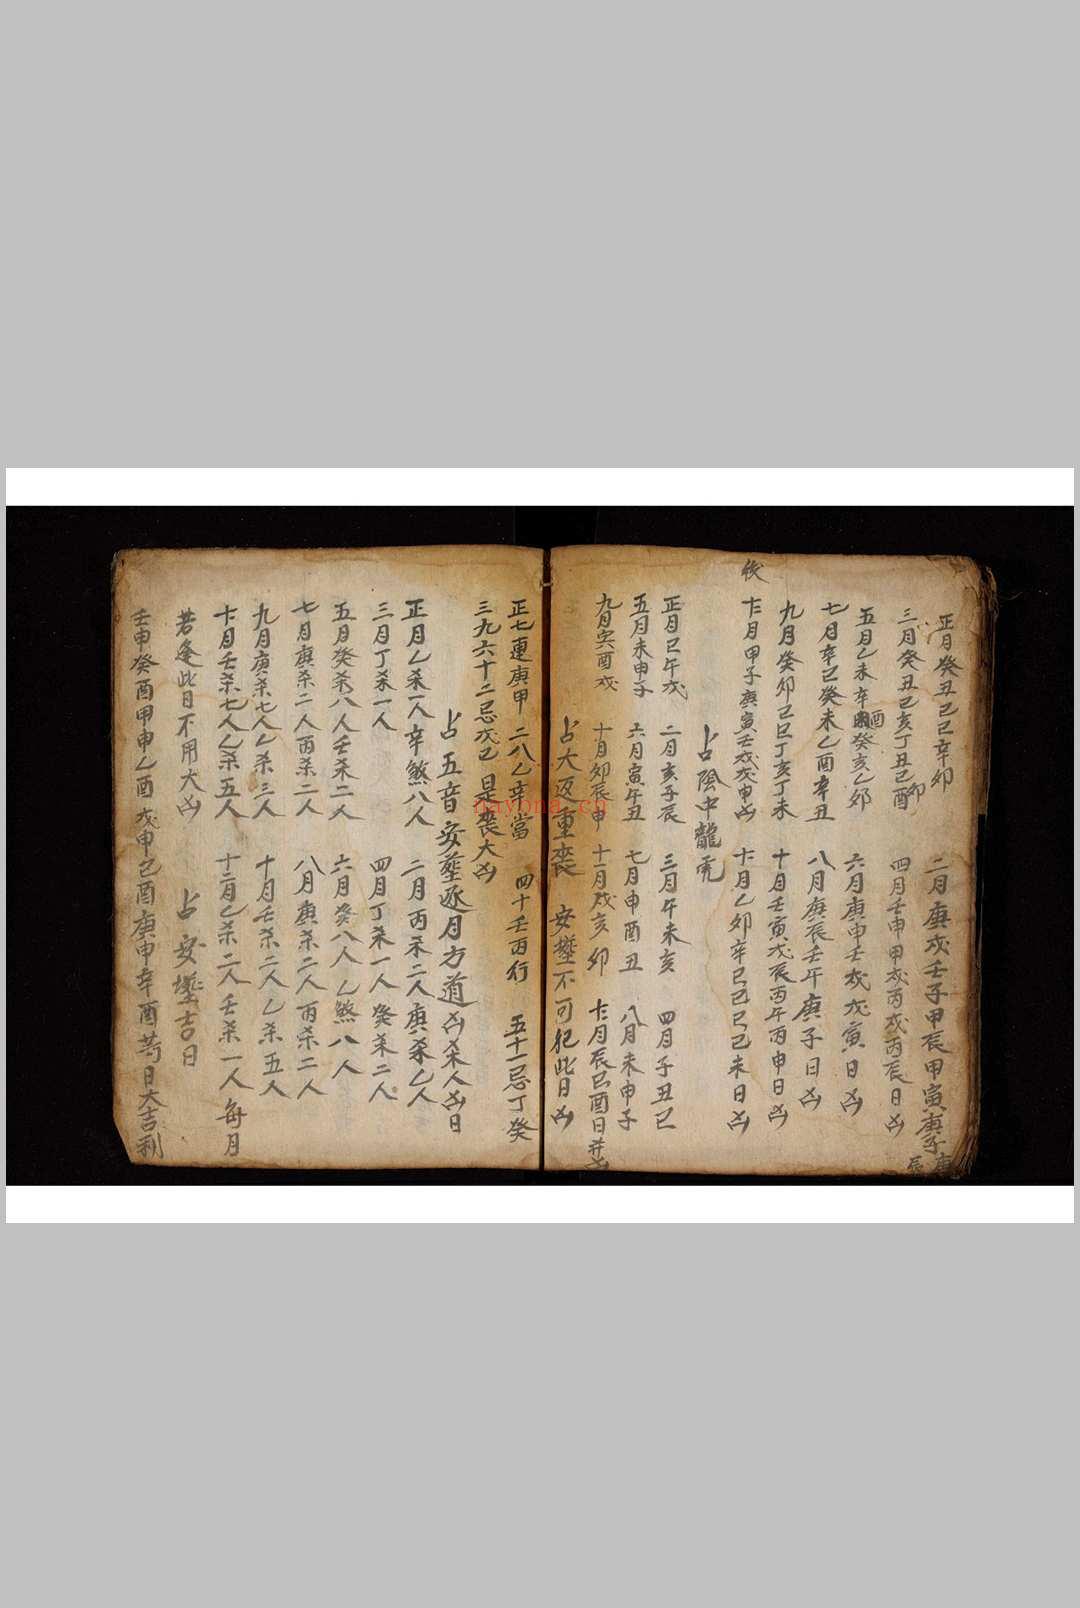 正月癸丑己巳辛卯 二月庚戌壬子甲辰甲寅庚子庚辰
三月癸丑己亥丁丑己酉卯 四月壬申甲戌丙戌丙辰日凶
五月乙未辛酉癸亥乙卯 六月庚申壬戌戊寅日凶
七月辛己癸未乙酉辛丑 八月庚辰壬午庚子日凶
九月癸卯己巳丁亥丁未 十月壬寅戊辰丙午丙申日凶
後
十一月甲子庚寅壬戌戊申凶 十二月乙卯辛巳己巳己未日凶
占陰中龍虎
正月巳午戌 二月亥子辰 三月午未亥 四月子丑巳
五月未申子 六月寅午丑 七月申酉丑 八月未申子
九月寅酉戌 十月卯辰申 十一月戌亥卯 十二月辰巳酉日并凶
占大返重喪 安塟不可犯此日凶
正七連庚甲 二八乙辛當 四十壬丙行 五十一忌丁癸
三九六十二忌戊己 是喪大凶
占五音安塟逐月方道凶杀人凶日
正月乙杀一人辛煞八人 二月丙杀二人庚杀乙人
三月丁杀一人 四月丁杀一人癸杀二人
五月癸杀八人壬杀二人 六月癸八人乙煞八人
七月庚杀二人丙杀二人 八月庚杀二人丙杀二人
九月庚杀七人乙杀三人 十月壬杀二人乙杀五人
十一月壬杀七人乙杀五人 十二月乙杀二人壬杀一人 每月
若逢此日不用大凶 占安塟吉日
壬申癸酉甲申乙酉戊申己酉庚申辛酉等日大吉利
nayona.cn